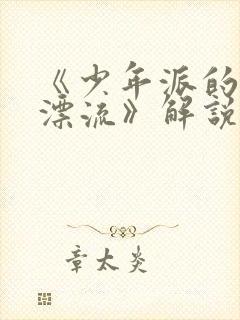 《少年派的
漂流》解說
章太炎